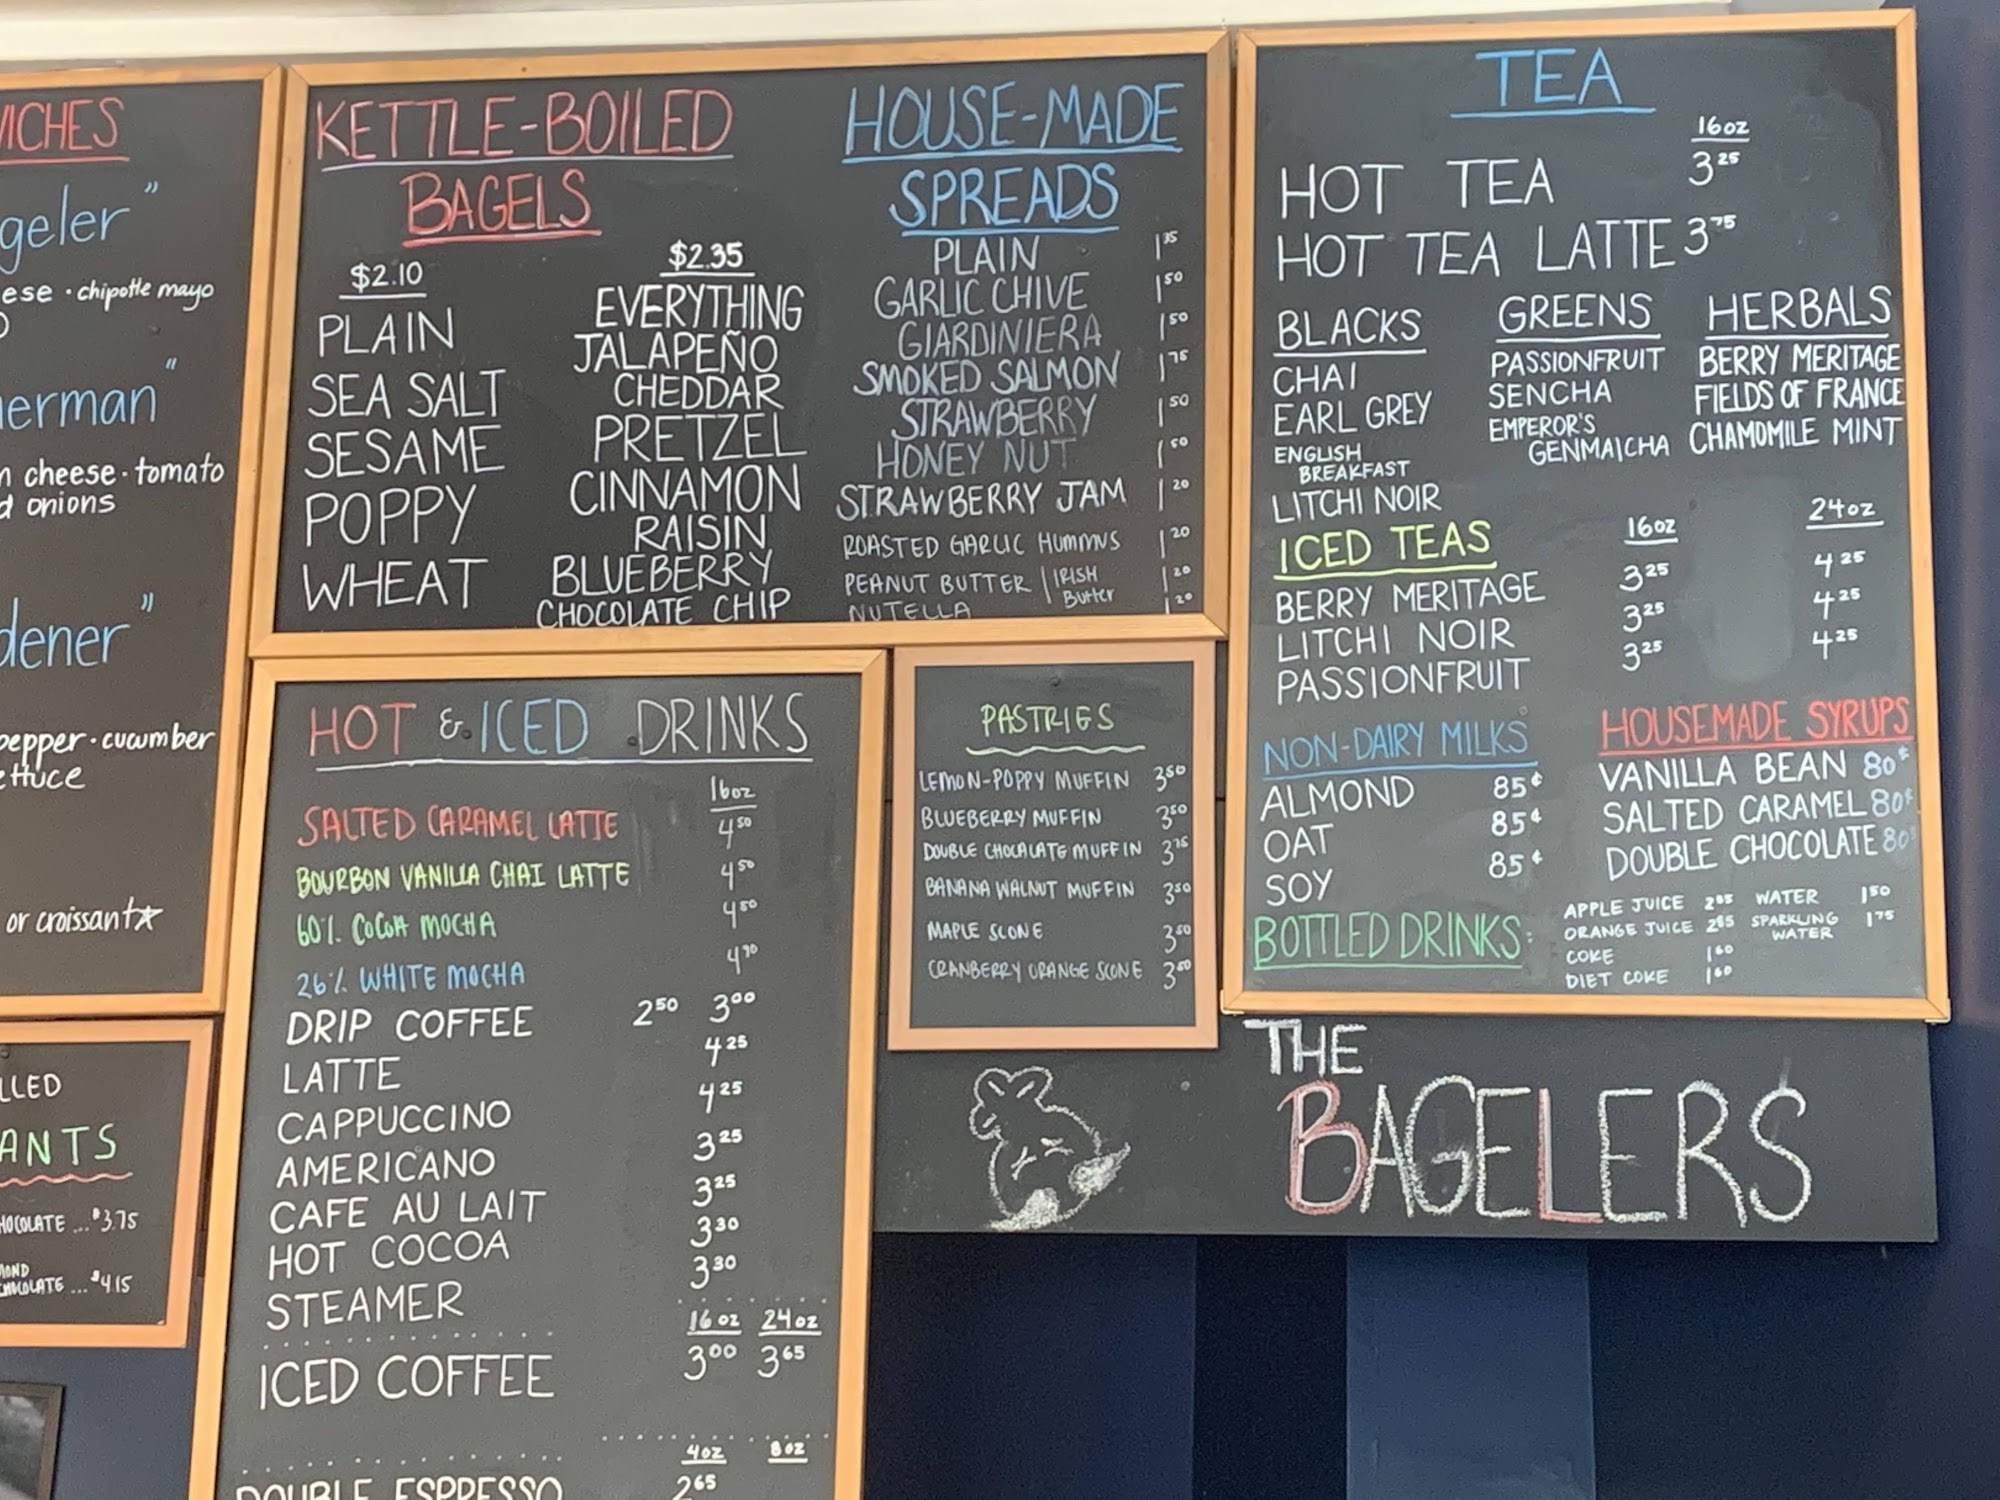 WICHES
geler"
ese · chipotle mayo
herman"
cheese · tomato
d onions
dener"
pepper · cucumber
ettuce
or croissant★
LLED
ANTS
HOCOLATE ... $3.75
MOND
CHOCOLATE ... $4.15
KETTLE-BOILED
BAGELS
$2.10
PLAIN
SEA SALT
SESAME
POPPY
WHEAT
$2.35
EVERYTHING
JALAPEÑO
CHEDDAR
PRETZEL
CINNAMON
RAISIN
BLUEBERRY
CHOCOLATE CHIP
HOUSE-MADE
SPREADS
PLAIN 1 35
GARLIC CHIVE 1 50
GIARDINIERA 1 50
SMOKED SALMON 1 75
STRAWBERRY 1 50
HONEY NUT 1 50
STRAWBERRY JAM 1 20
ROASTED GARLIC HUMMUS 1 20
PEANUT BUTTER | IRISH Butter 1 20
NUTELLA 1 20
HOT & ICED DRINKS
16oz
SALTED CARAMEL LATTE 4 50
BOURBON VANILLA CHAI LATTE 4 50
60% COCOA MOCHA 4 50
26% WHITE MOCHA 4 90
DRIP COFFEE 2 50 3 00
LATTE 4 25
CAPPUCCINO 4 25
AMERICANO 3 25
CAFE AU LAIT 3 25
HOT COCOA 3 30
STEAMER 3 30
16oz 24oz
ICED COFFEE 3 00 3 65
4oz 8oz
DOUBLE ESPRESSO 2 65
PASTRIES
LEMON-POPPY MUFFIN 3 50
BLUEBERRY MUFFIN 3 50
DOUBLE CHOCALATE MUFFIN 3 75
BANANA WALNUT MUFFIN 3 50
MAPLE SCONE 3 50
CRANBERRY ORANGE SCONE 3 50
TEA
16oz
HOT TEA 3 25
HOT TEA LATTE 3 75
BLACKS
CHAI
EARL GREY
ENGLISH
BREAKFAST
LITCHI NOIR
GREENS
PASSIONFRUIT
SENCHA
EMPEROR'S
GENMAICHA
HERBALS
BERRY MERITAGE
FIELDS OF FRANCE
CHAMOMILE MINT
ICED TEAS 16oz 24oz
BERRY MERITAGE 3 25 4 25
LITCHI NOIR 3 25 4 25
PASSIONFRUIT 3 25 4 25
NON-DAIRY MILKS
ALMOND 85¢
OAT 85¢
SOY 85¢
HOUSEMADE SYRUPS
VANILLA BEAN 80¢
SALTED CARAMEL 80¢
DOUBLE CHOCOLATE 80¢
BOTTLED DRINKS:
APPLE JUICE 2 85
ORANGE JUICE 2 85
COKE 1 60
DIET COKE 1 60
WATER 1 50
SPARKLING
WATER 1 75
THE
BAGELERS